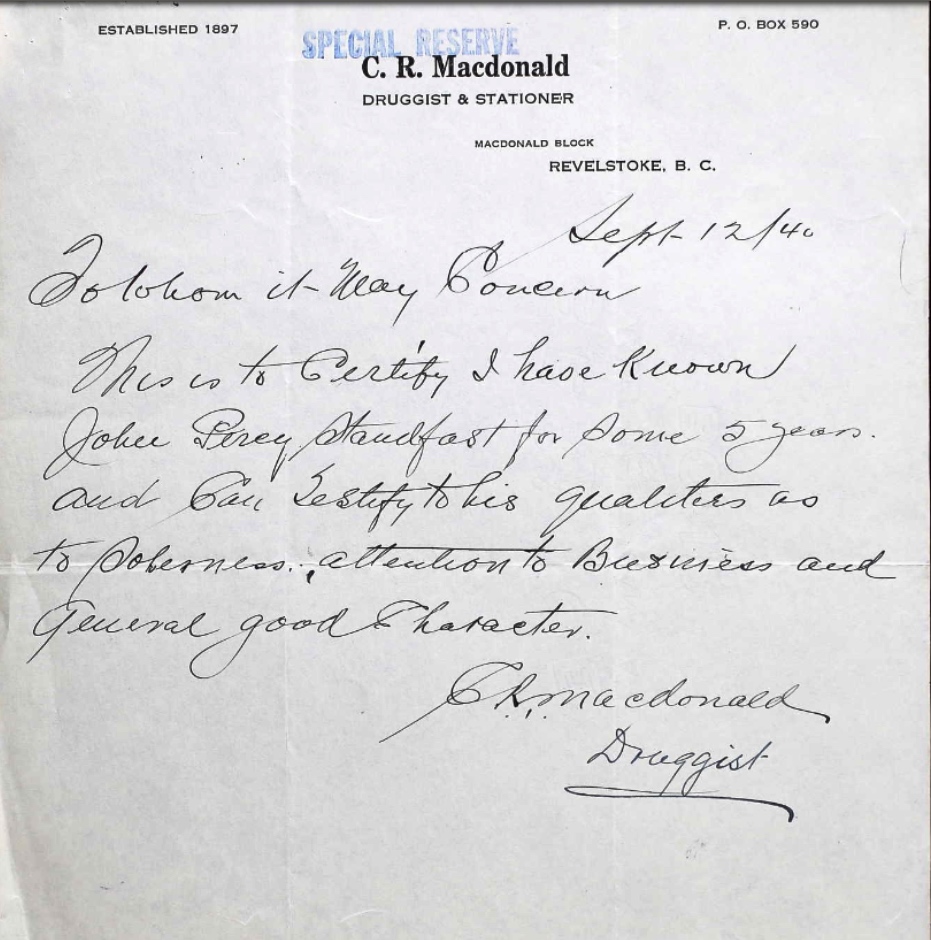 ESTABLISHED 1897
P. O. BOX 590
SPECIAL RESERVE
C. R. Macdonald
DRUGGIST & STATIONER
MACDONALD BLOCK
REVELSTOKE, B. C.
Sept 12/40
To whom it May Concern
This is to Certify I have Known
John Percy Standfast for some 5 years.
and Can Testify to his qualities as
to soberness, attention to Business and
General good Character.
C R Macdonald
Druggist